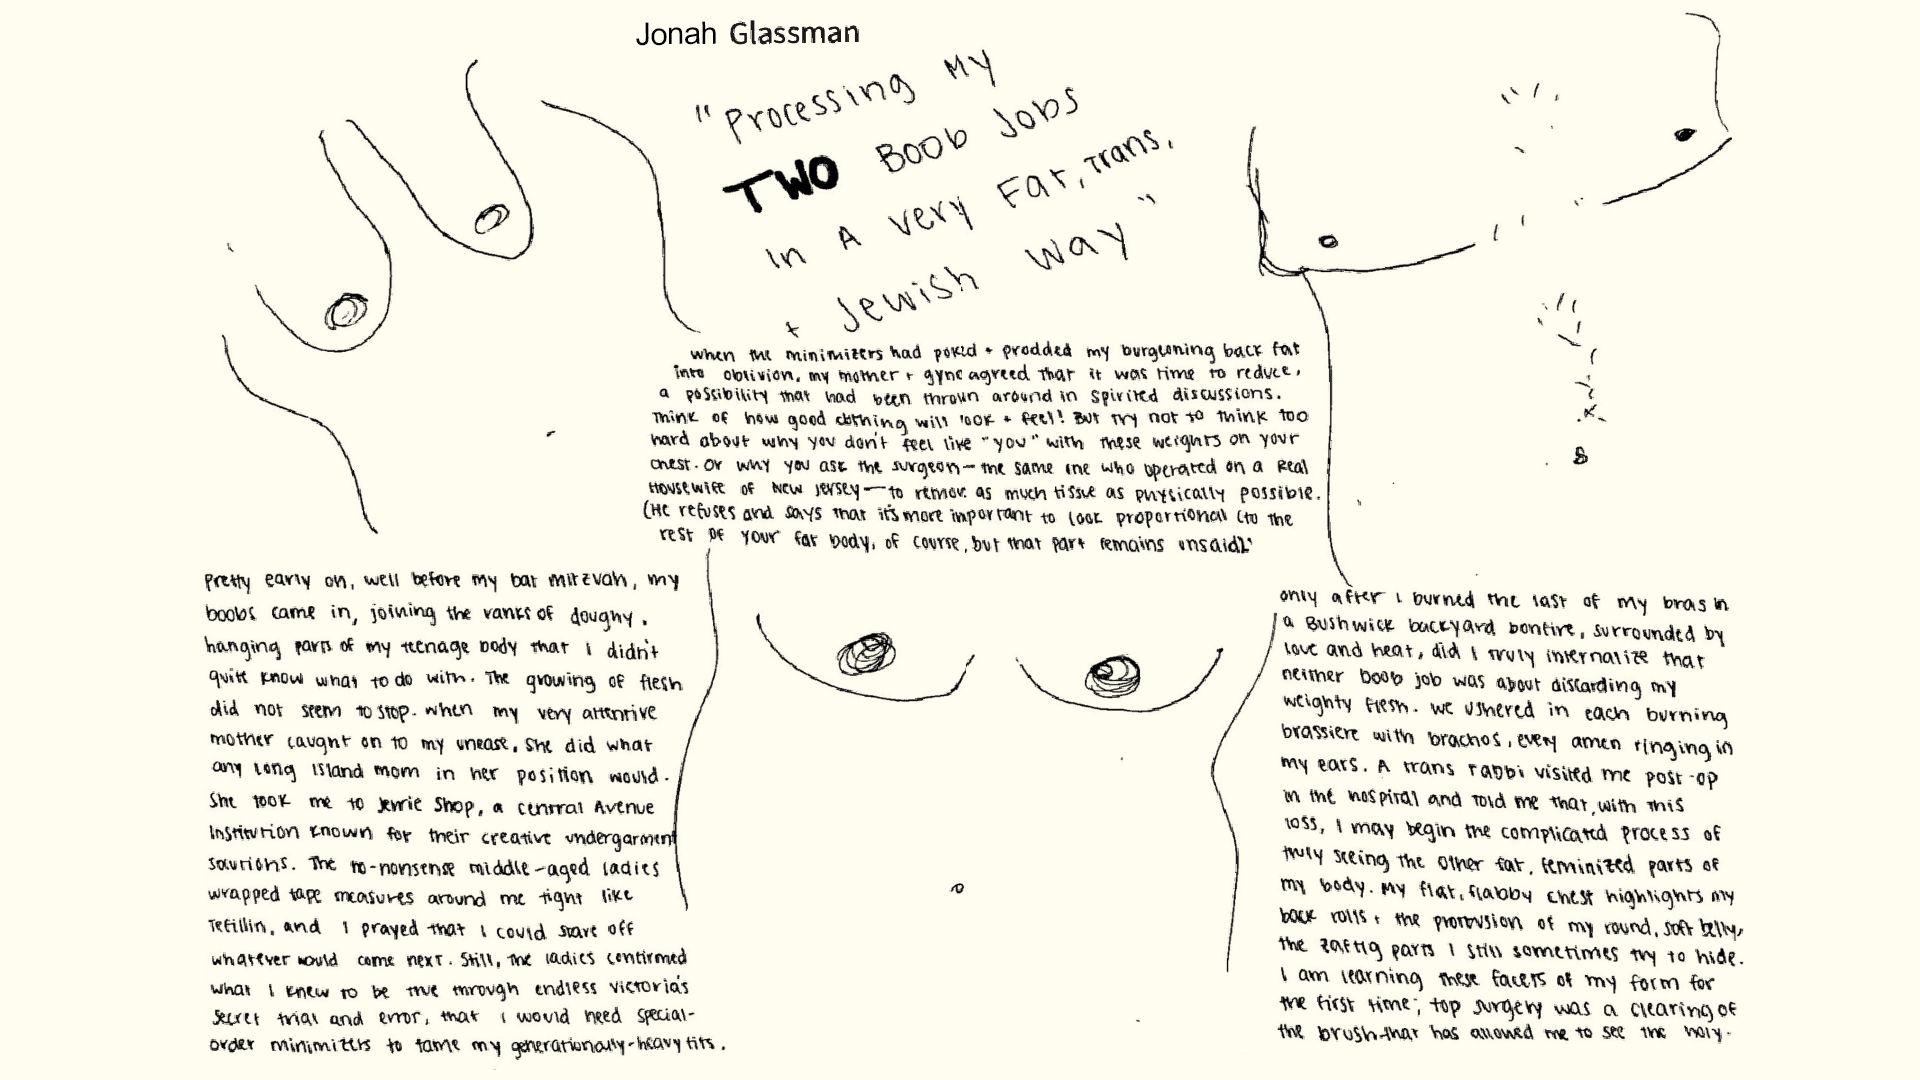 Jonah Glassman
"Processing My
TWO Boob Jobs
In A Very Fat, Trans,
+ Jewish Way"
Pretty early on, well before my bat mitzvah, my
boobs came in, joining the ranks of doughy,
hanging parts of my teenage body that I didn't
quite know what to do with. The growing of flesh
did not seem to stop. When my very attentive
mother caught on to my unease, she did what
any Long Island mom in her position would.
She took me to Jennie Shop, a Central Avenue
Institution known for their creative undergarment
solutions. The no-nonsense middle-aged ladies
wrapped tape measures around me tight like
Tefillin, and I prayed that I could stave off
whatever would come next. Still, the ladies confirmed
what I knew to be true through endless Victoria's
Secret trial and error, that I would need special-
order minimizers to tame my generationally-heavy tits.
When the minimizers had poked + prodded my burgeoning back fat
into oblivion, my mother + gyno agreed that it was time to reduce,
a possibility that had been thrown around in spirited discussions.
Think of how good clothing will look + feel! But try not to think too
hard about why you don't feel like "you" with these weights on your
chest. Or why you ask the surgeon—the same one who operated on a Real
Housewife of New Jersey—to remove as much tissue as physically possible.
(He refuses and says that it's more important to look proportional (to the
rest of your fat body, of course, but that part remains unsaid).
Only after I burned the last of my bras in
a Bushwick backyard bonfire, surrounded by
love and heat, did I truly internalize that
neither boob job was about discarding my
weighty flesh. We ushered in each burning
brassiere with brachos, every amen ringing in
my ears. A trans rabbi visited me post-op
in the hospital and told me that, with this
loss, I may begin the complicated process of
truly seeing the other fat, feminized parts of
my body. My flat, flabby chest highlights my
back rolls + the protrusion of my round, soft belly,
the zaftig parts I still sometimes try to hide.
I am learning these facets of my form for
the first time; top surgery was a clearing of
the brush that has allowed me to see the holy.